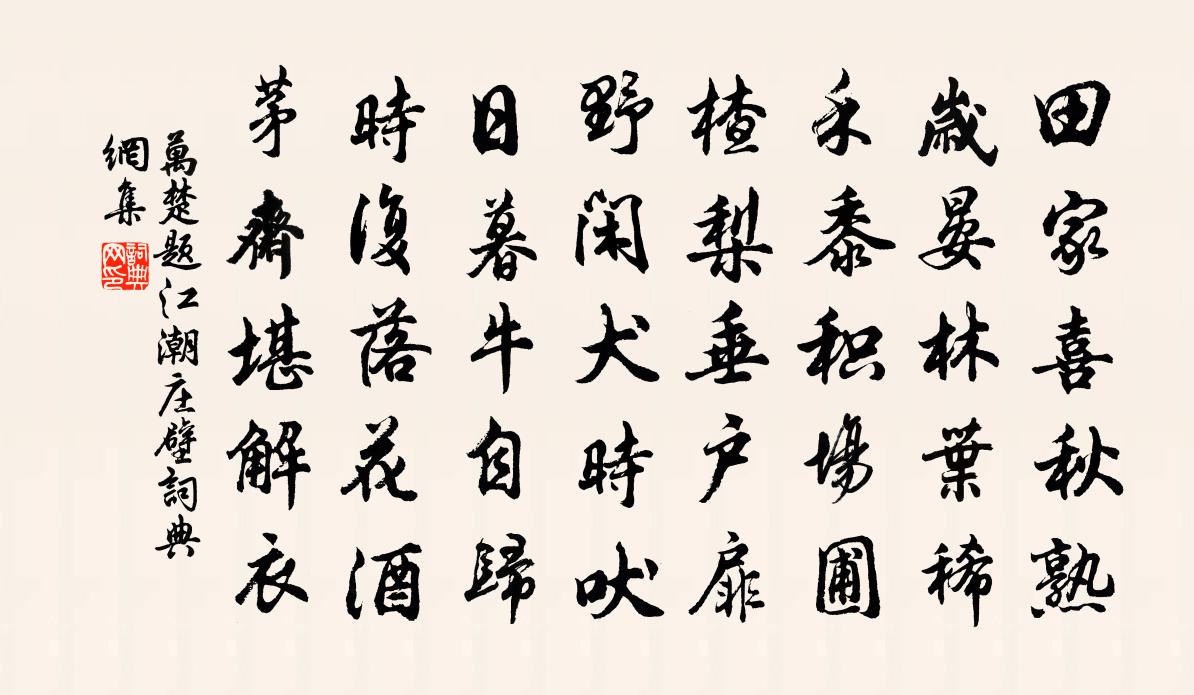 田家喜秋熟
歳晏林葉稀
禾黍积場圃
楂梨垂户扉
野闲犬時吠
日暮牛自歸
時復落花酒
茅齋堪解衣
萬楚题江潮庄壁詞典
網集
詞典网印